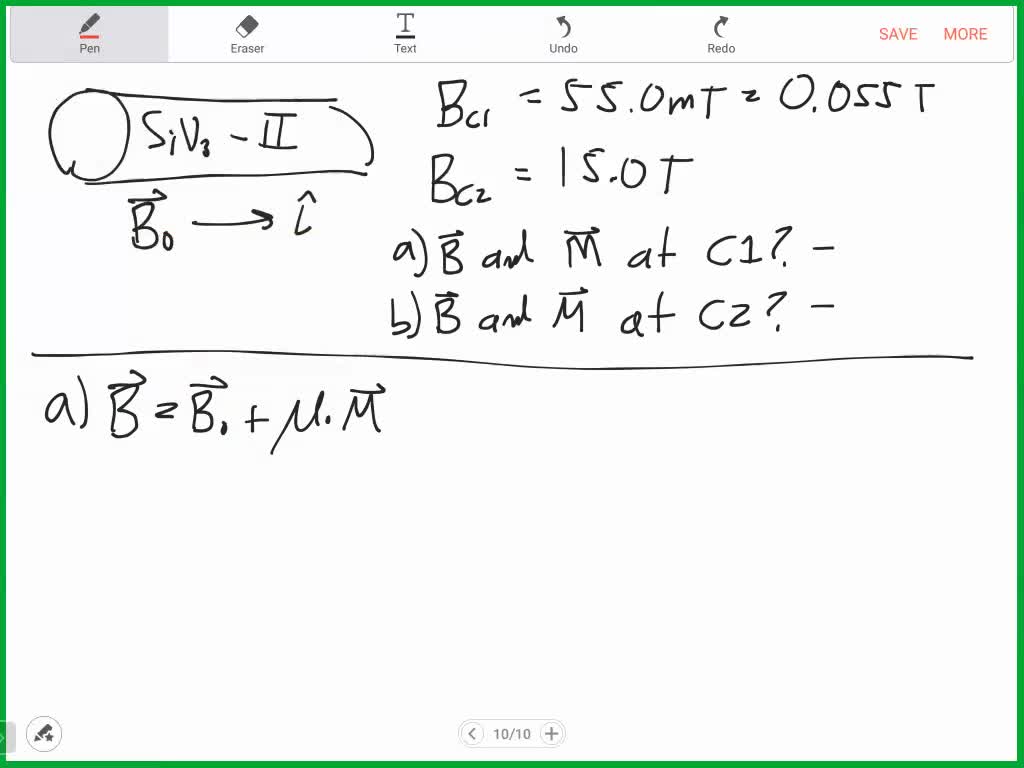 Pen
Eraser
T
Text
Undo
Redo
SAVE
MORE
SiV₃ - II
B⃗₀ → î
B_C1 = 55.0mT = 0.055T
B_C2 = 15.0T
a) B⃗ and M⃗ at C1? -
b) B⃗ and M⃗ at C2? -
a) B⃗ = B⃗₀ + μ₀M⃗
10/10